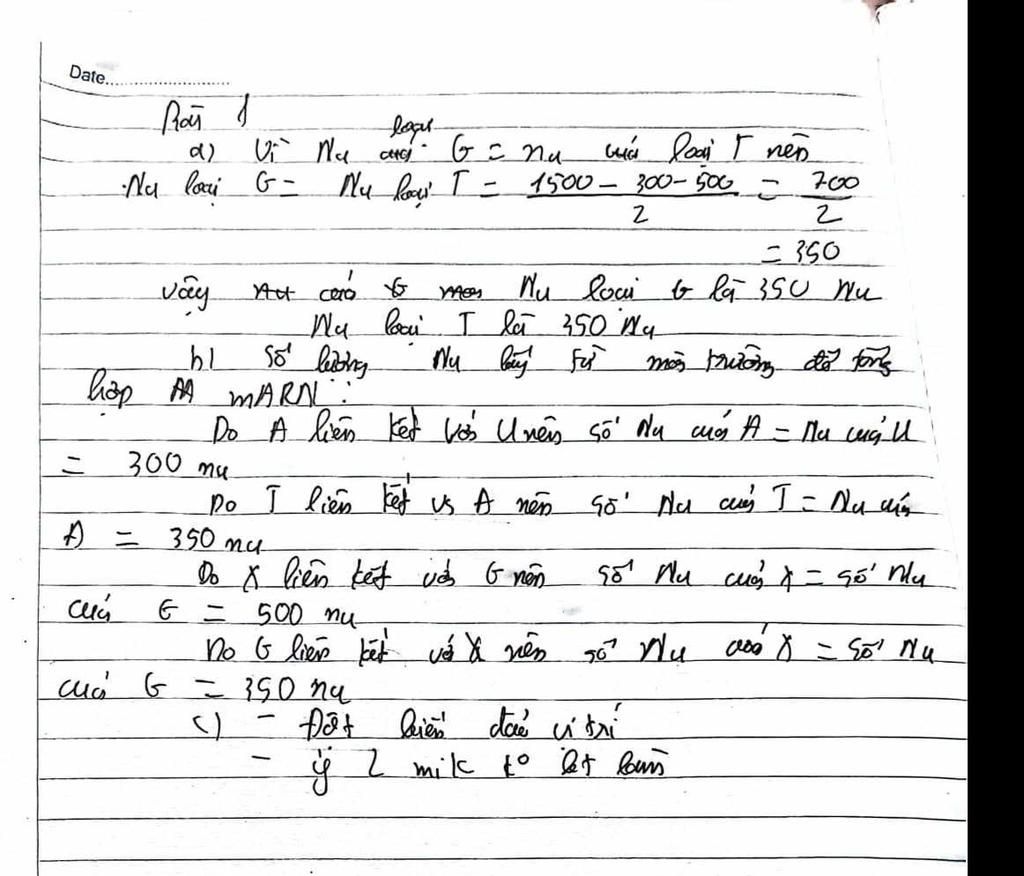 Date....................
Bài 1
a) Vì Nu loại G = nu của loại T nên
Nu loại G = Nu loại T = 1500 - 300 - 500 / 2 = 700 / 2
= 350
vậy Nu loại G là 350 Nu
Nu loại T là 350 Nu
b) Số lượng Nu lấy từ môi trường để tổng
hợp mARN :
Do A liên kết với U nên số Nu của A = Nu của U
= 300 nu
Do T liên kết vs A nên số Nu của T = Nu của
A = 350 nu
Do X liên kết với G nên số Nu của X = số Nu
của G = 500 nu
Do G liên kết với X nên số Nu của X = số Nu
của G = 350 nu
c) - Đột biến đảo vị trí
- ý 2 mik ko bt làm